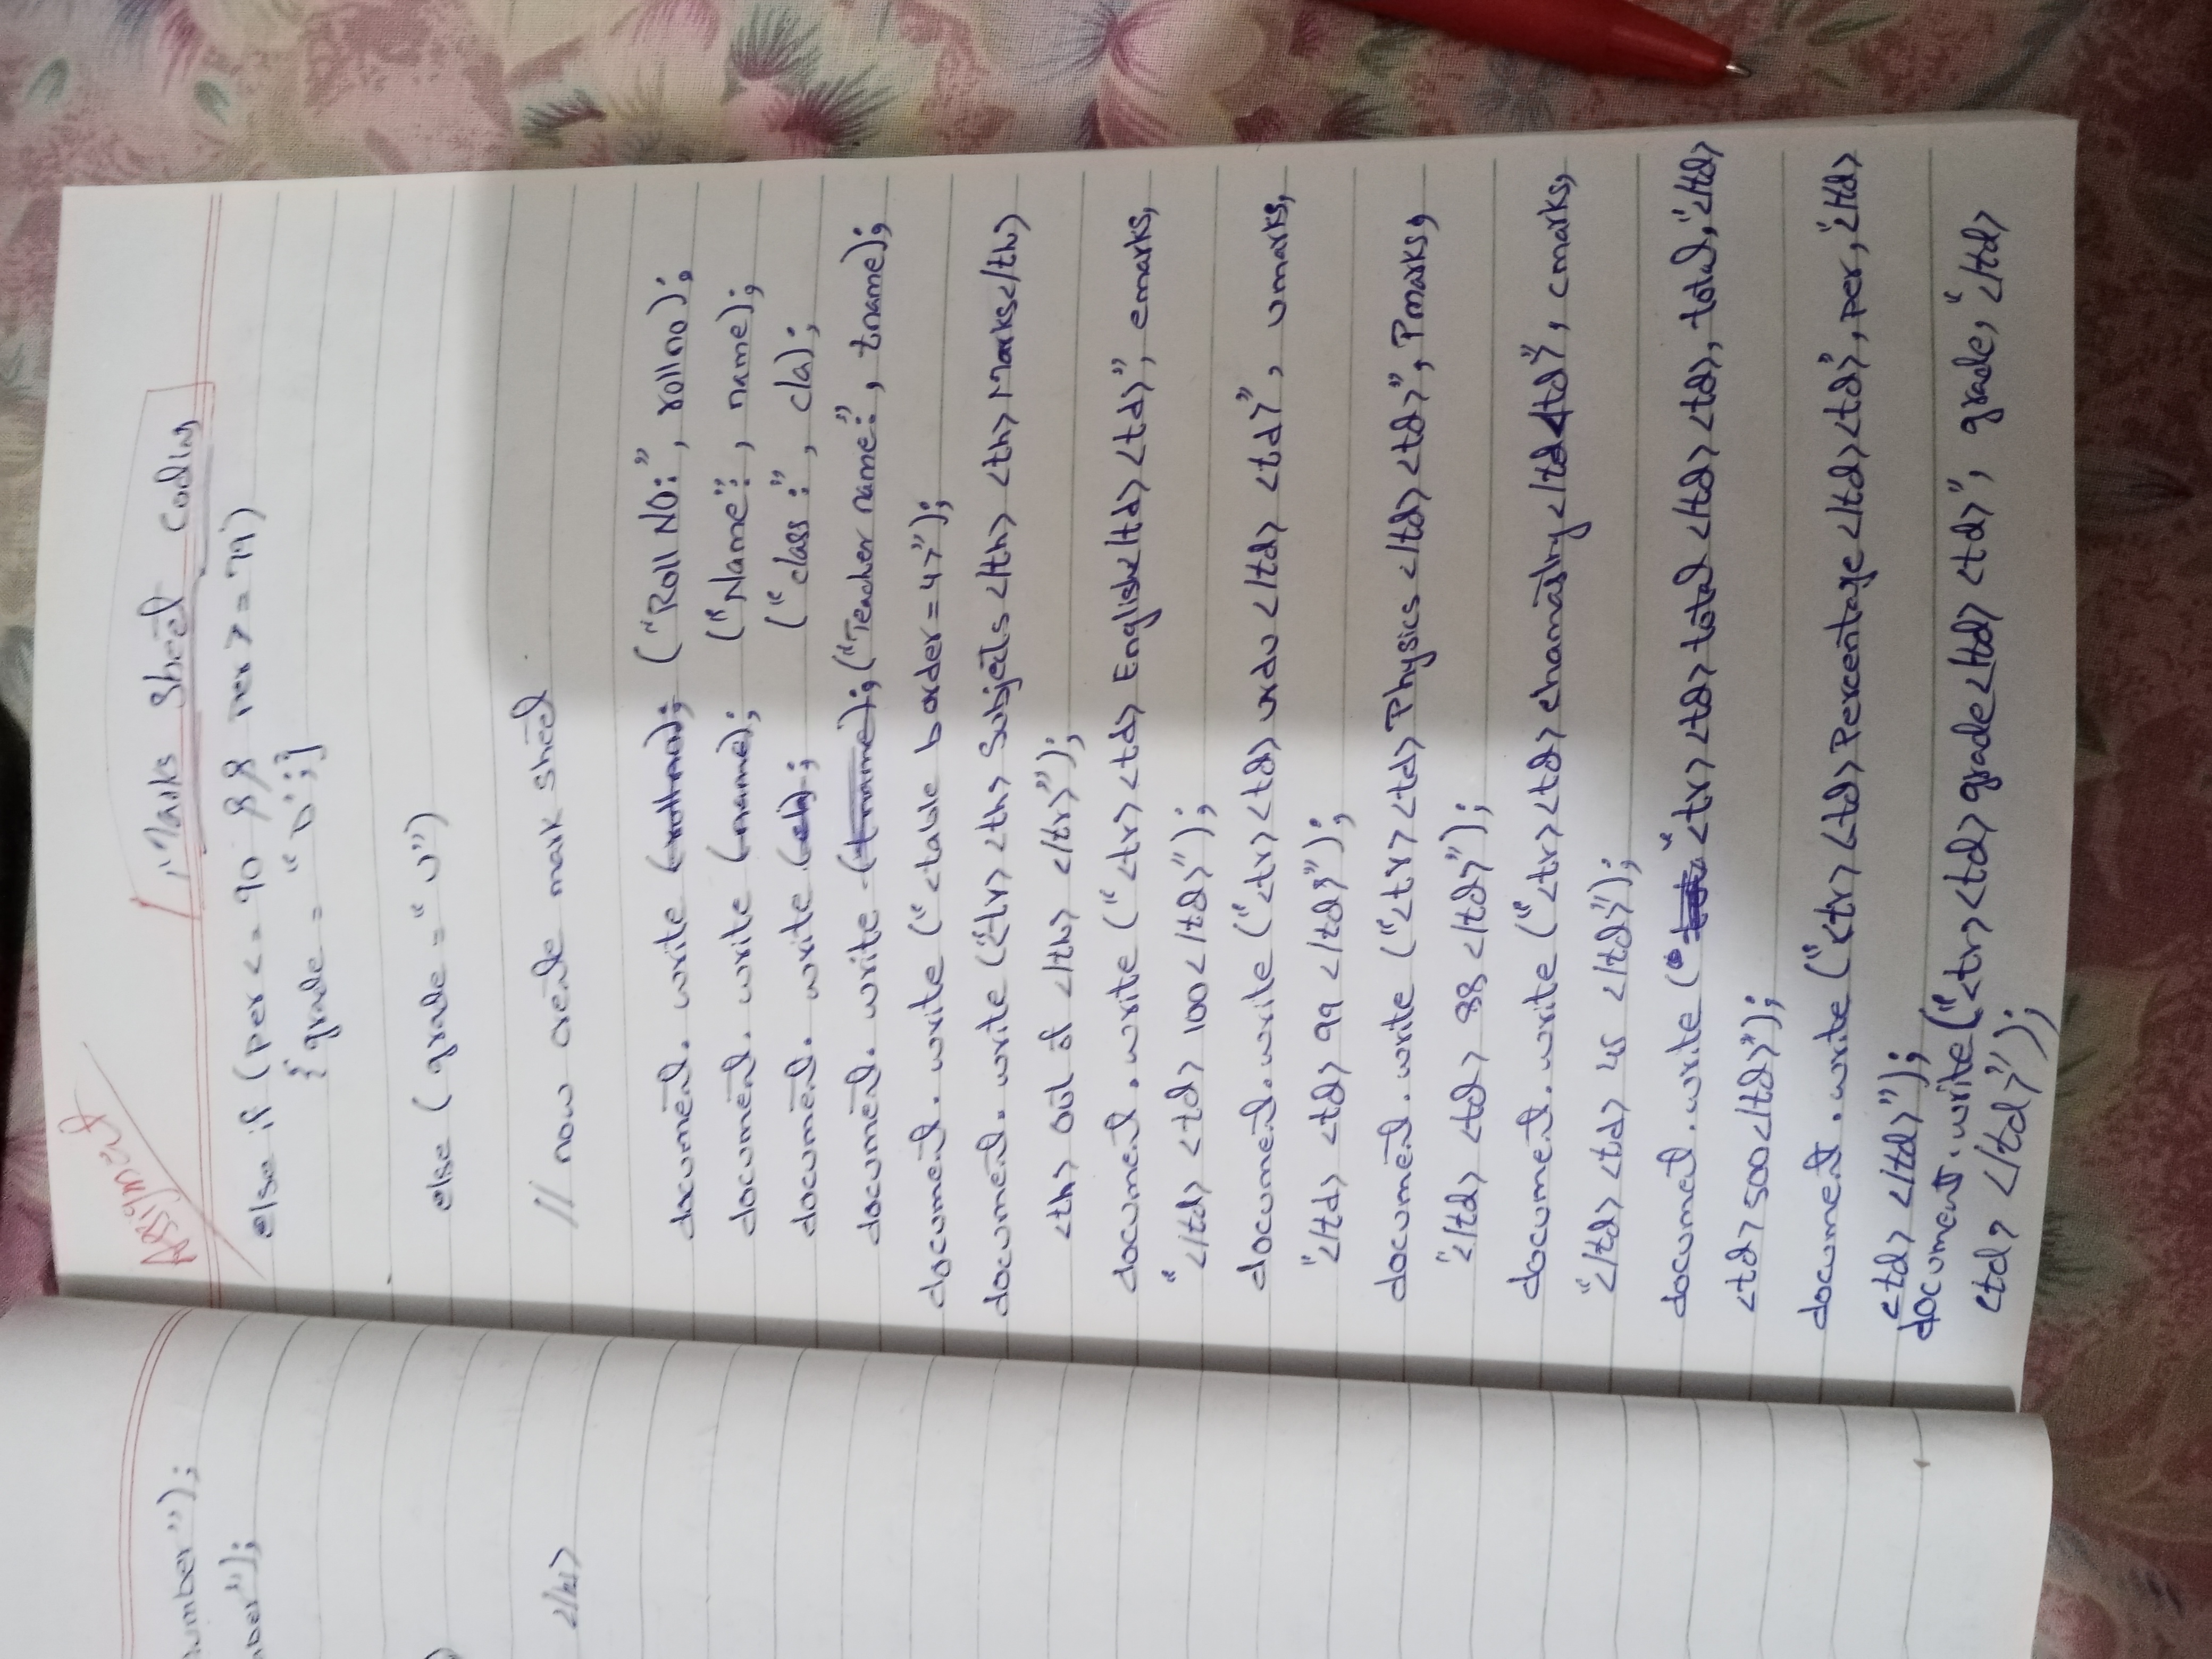 Assignment
"Marks Sheet Coding
else if (per <= 90 && per >= 79)
{ grade = "D";}
else (grade = "U")
// now create mark sheet
document.write (rollno); ("Roll NO:", rollno);
document.write (name); ("Name": , name);
document.write (cla); ("class:", cla);
document.write (tname); ("Teacher name:", tname);
document.write ("<table border=4>");
document.write ("<tr><th>Subjects</th> <th>Marks</th>
<th> out of </th> </tr>");
document.write ("<tr><td>English</td><td>", emarks,
"</td> <td> 100 </td>");
document.write ("<tr><td>urdu </td> <td>", umarks,
"</td> <td> 99 </td>");
document.write ("<tr><td>Physics </td><td>", Pmarks,
"</td> <td> 88 </td>");
document.write ("<tr><td>chamastry</td<td>", cmarks,
"</td> <td> 45 </td>");
document.write (" "<tr> <td> total </td> <td>, total, "</td>
<td> 500</td>");
document.write ("<tr> <td>Percentage </td><td>", per, "</td>
<td> </td>");
document.write ("<tr><td>grade</td> <td>", grade, "</td>
<td> </td>");
number");
mber");
</h1>